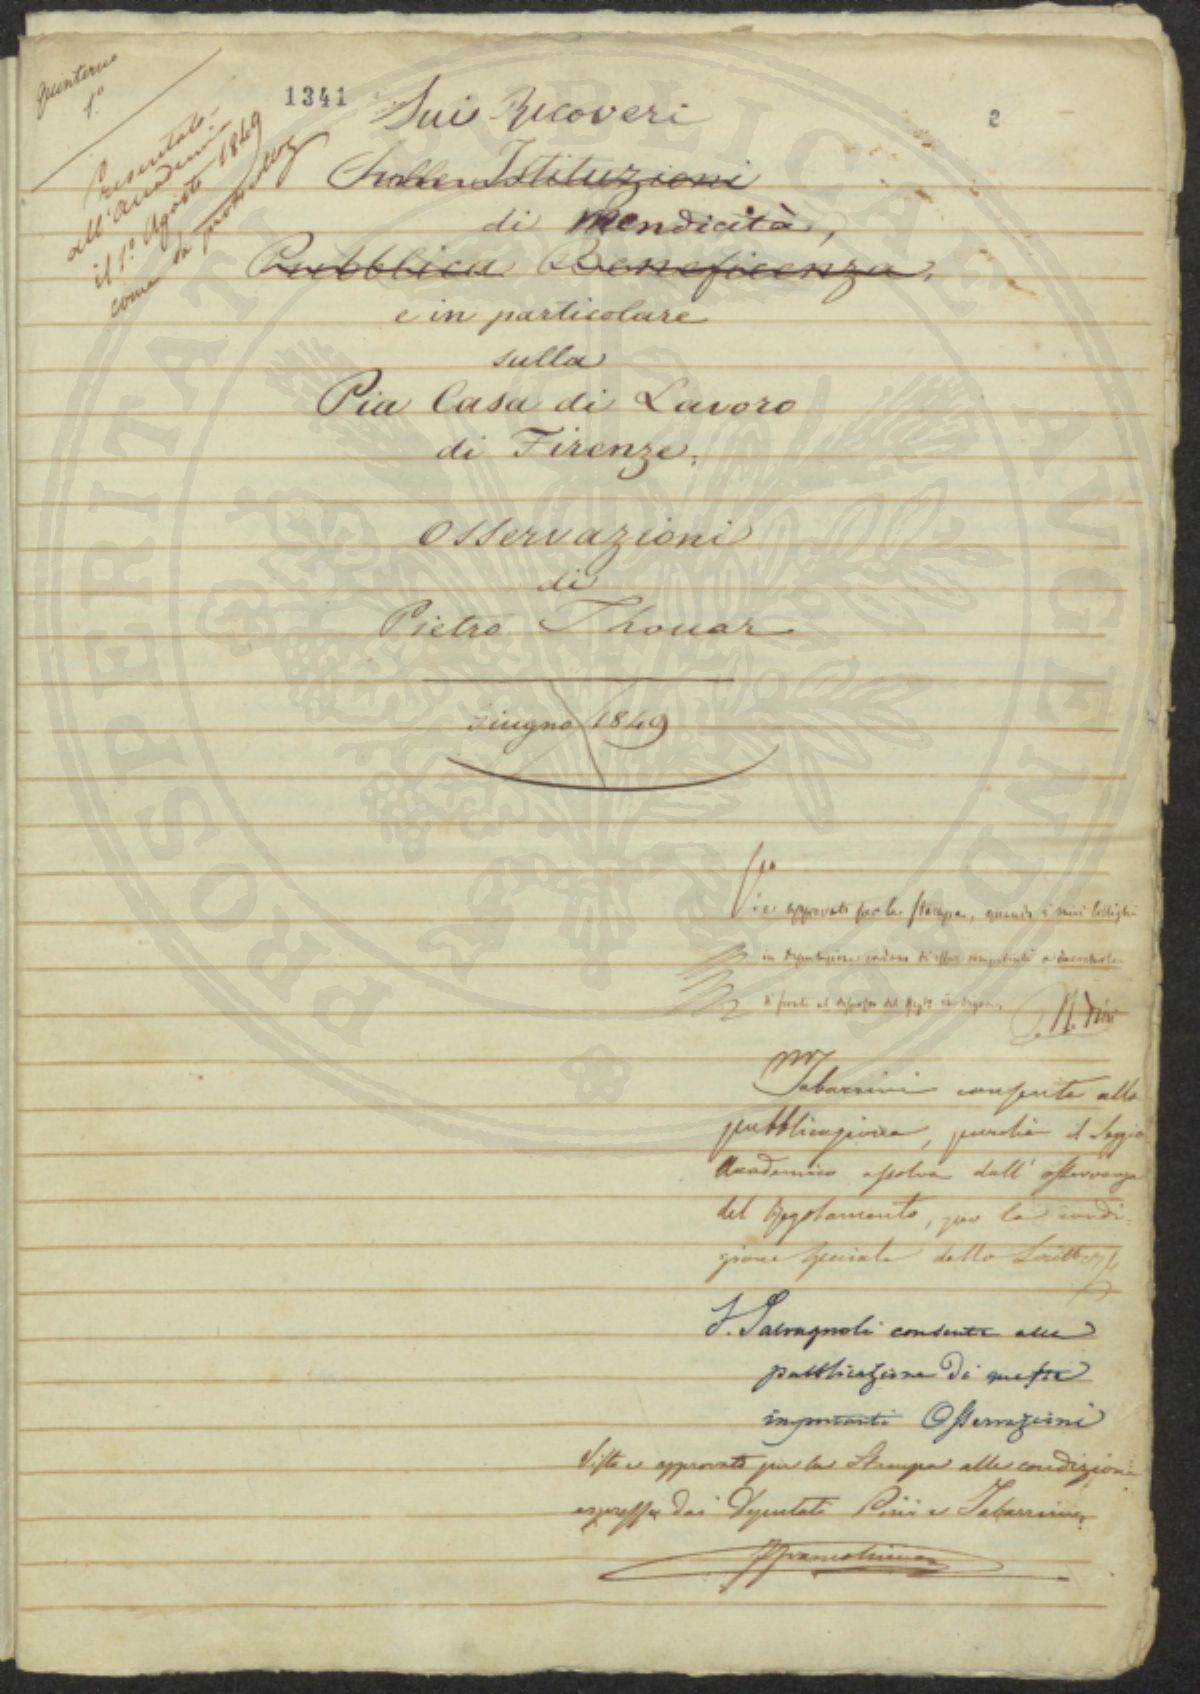 Quinterno
1.°
Presentato
all'Accademia
il 1.° Agosto 1849
come da
1341
2
Sui Ricoveri
Sulle Istituzioni
di Mendicità,
Pubblica Beneficenza,
e in particolare
sulla
Pia Casa di Lavoro
di Firenze.
Osservazioni
di
Pietro Thouar
Giugno 1849
approvato per la stampa, quando i miei Colleghi
in Deputazione credano di esser competenti a
di fronte al disposto del
Tabarrini consente alla
pubblicazione, purché il Seggio
Accademico assolva dall'osservanza
del Regolamento, per la condi-
zione speciale dello Scritto
V. Salvagnoli consente alla
pubblicazione di queste
importanti Osservazioni
Visto e approvato per la Stampa alle condizioni
espresse dai Deputati Pini e Tabarrini
PROSPERITATI PUBLICAE AVGENDAE